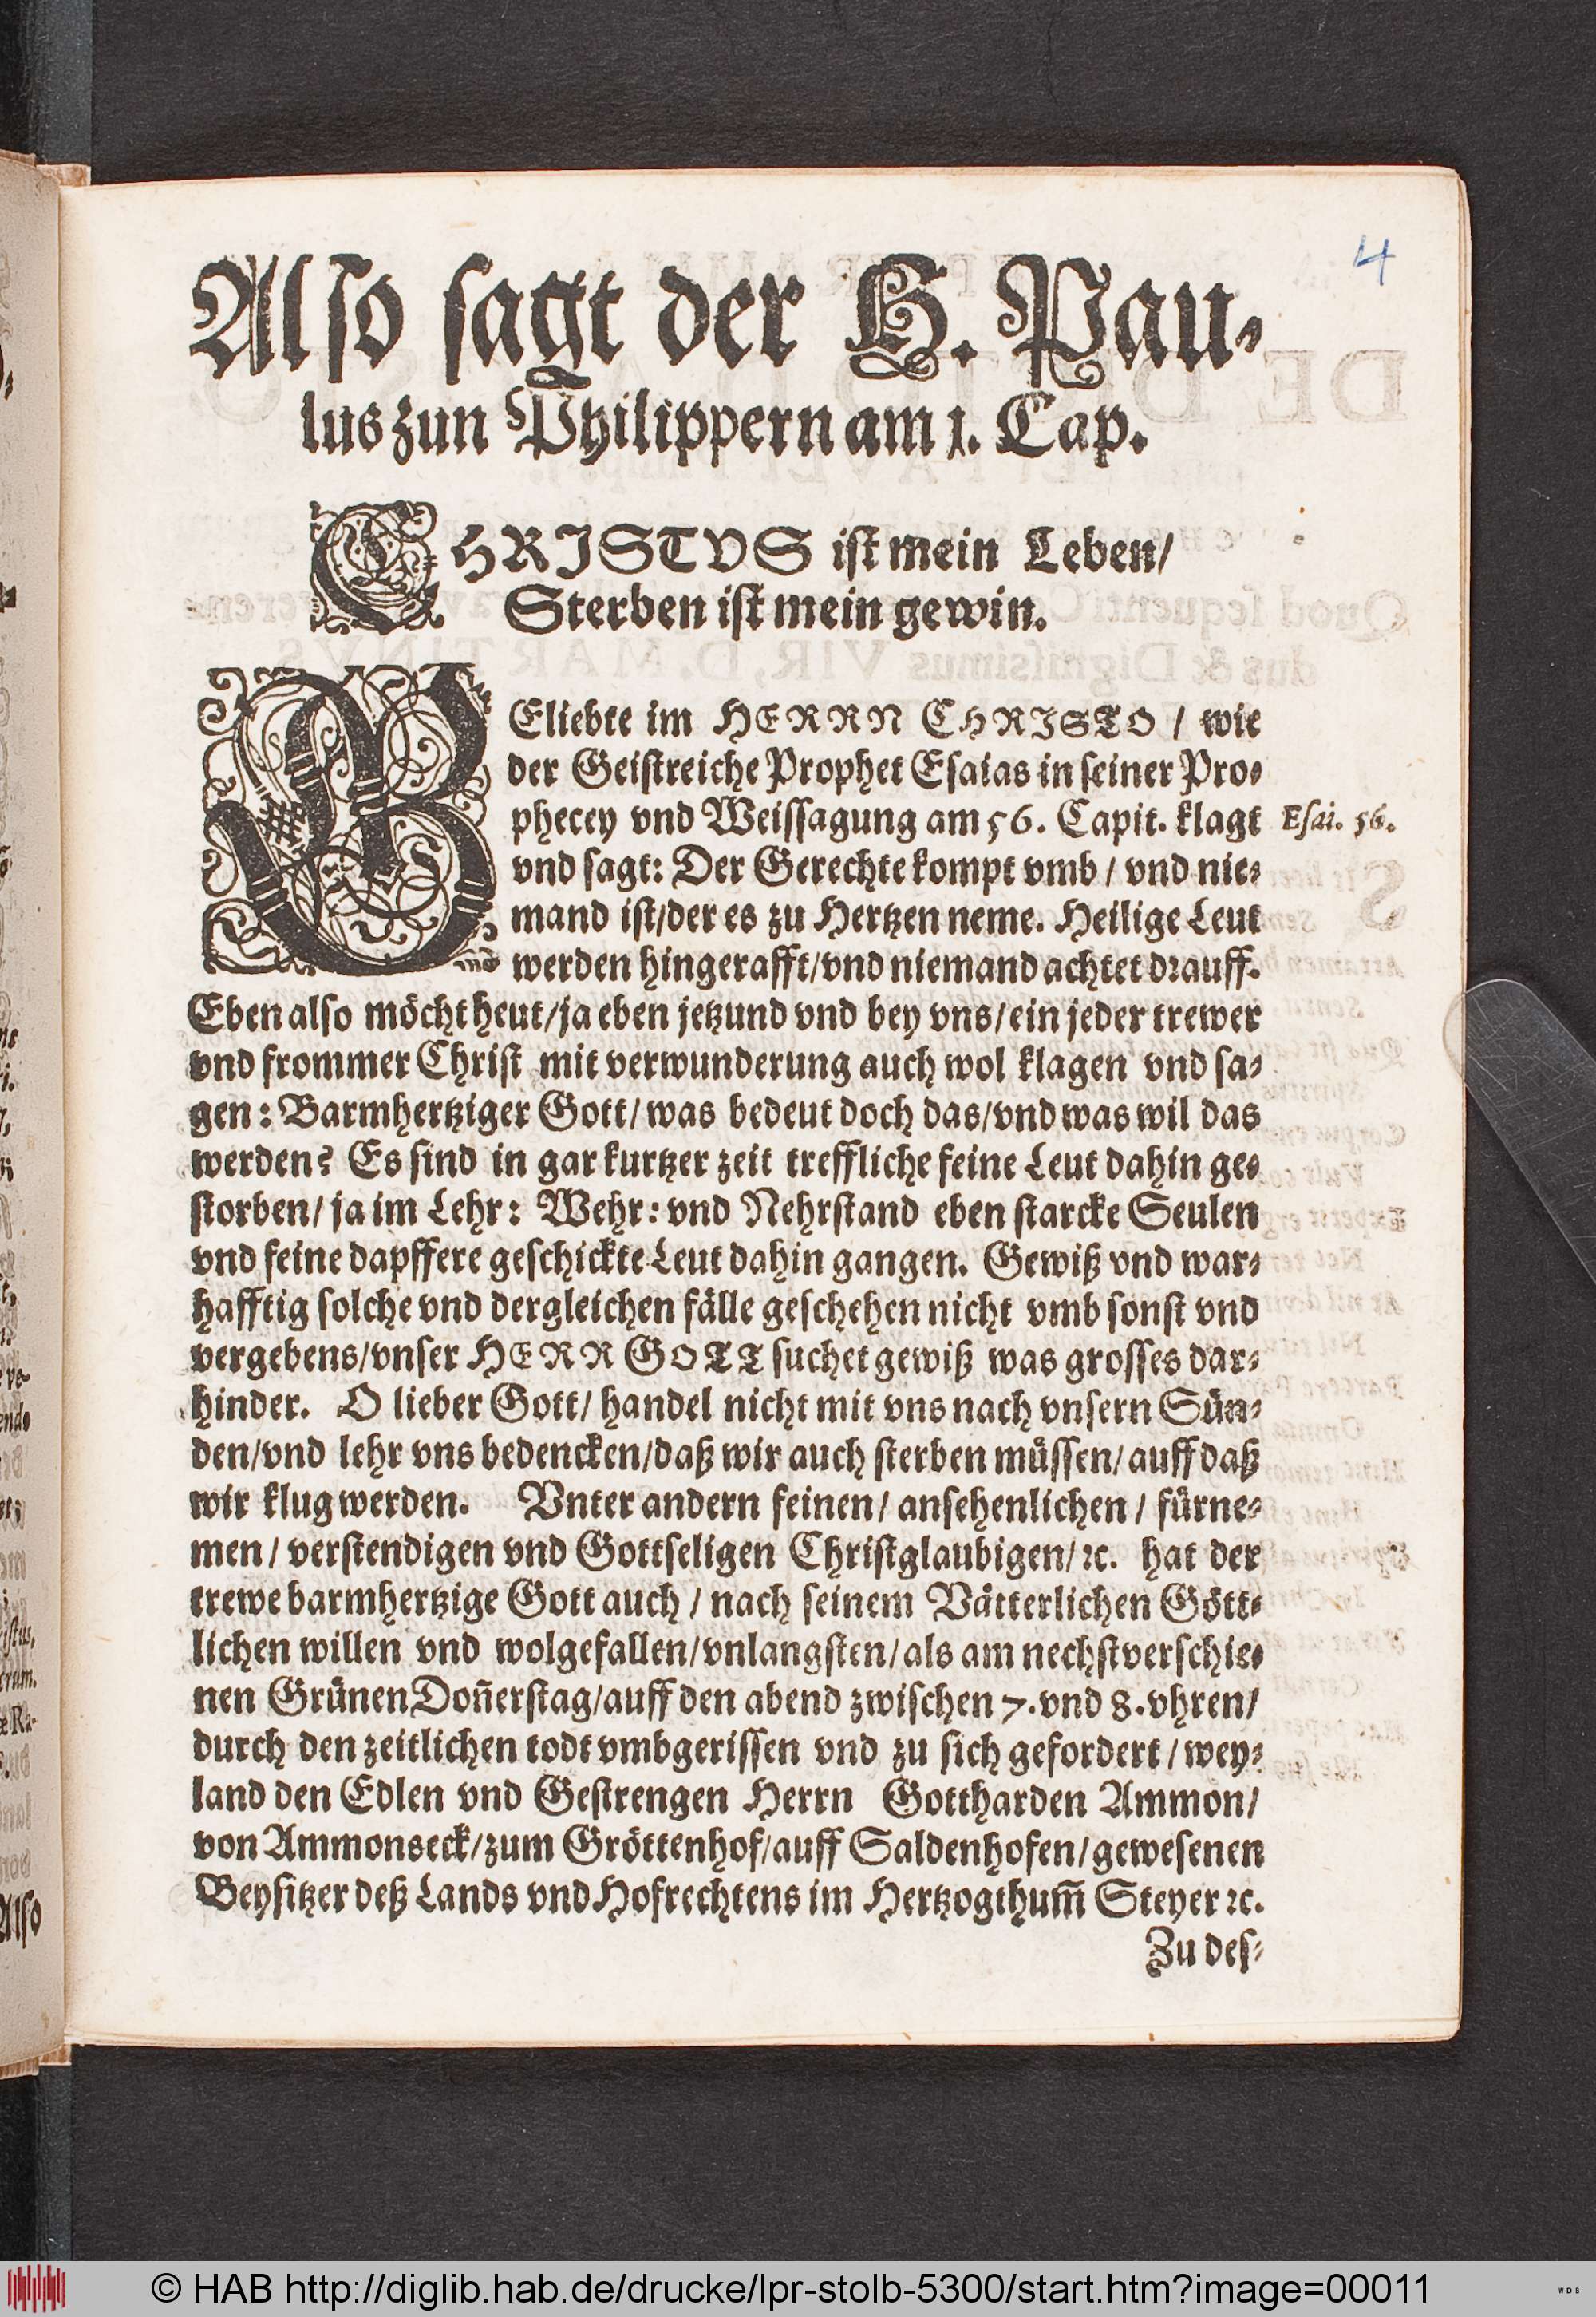 4
Also sagt der H. Pau-
lus zun Philippern am 1. Cap.
CHRISTVS ist mein Leben/
Sterben ist mein gewin.
GEliebte im HERRN CHRISTO / wie
der Geistreiche Prophet Esaias in seiner Pro-
phecey vnd Weissagung am 56. Capit. klagt
Esai. 56.
vnd sagt: Der Gerechte kompt vmb / vnd nie-
mand ist/der es zu Hertzen neme. Heilige Leut
werden hingerafft/vnd niemand achtet drauff.
Eben also möcht heut/ja eben jetzund vnd bey vns/ein jeder trewer
vnd frommer Christ mit verwunderung auch wol klagen vnd sa-
gen: Barmhertziger Gott/ was bedeut doch das/vnd was wil das
werden? Es sind in gar kurtzer zeit treffliche feine Leut dahin ge-
storben/ ja im Lehr: Wehr: vnd Nehrstand eben starcke Seulen
vnd feine dapffere geschickte Leut dahin gangen. Gewiß vnd war-
hafftig solche vnd dergleichen fälle geschehen nicht vmb sonst vnd
vergebens/vnser HERR GOTT suchet gewiß was grosses dar-
hinder. O lieber Gott/ handel nicht mit vns nach vnsern Sün-
den/vnd lehr vns bedencken/daß wir auch sterben müssen/ auff daß
wir klug werden. Vnter andern feinen/ ansehenlichen / fürne-
men / verstendigen vnd Gottseligen Christglaubigen/ ꝛc. hat der
trewe barmhertzige Gott auch / nach seinem Vätterlichen Gött-
lichen willen vnd wolgefallen/vnlangsten/als am nechstverschie-
nen Grünen Doñerstag/auff den abend zwischen 7. vnd 8. vhren/
durch den zeitlichen todt vmbgerissen vnd zu sich gefordert / wey-
land den Edlen vnd Gestrengen Herrn Gottharden Ammon/
von Ammonseck/zum Gröttenhof/auff Saldenhofen/gewesenen
Beysitzer deß Lands vnd Hofrechtens im Hertzogthum̃ Steyer ꝛc.
Zu des-
Also
© HAB http://diglib.hab.de/drucke/lpr-stolb-5300/start.htm?image=00011
WDB